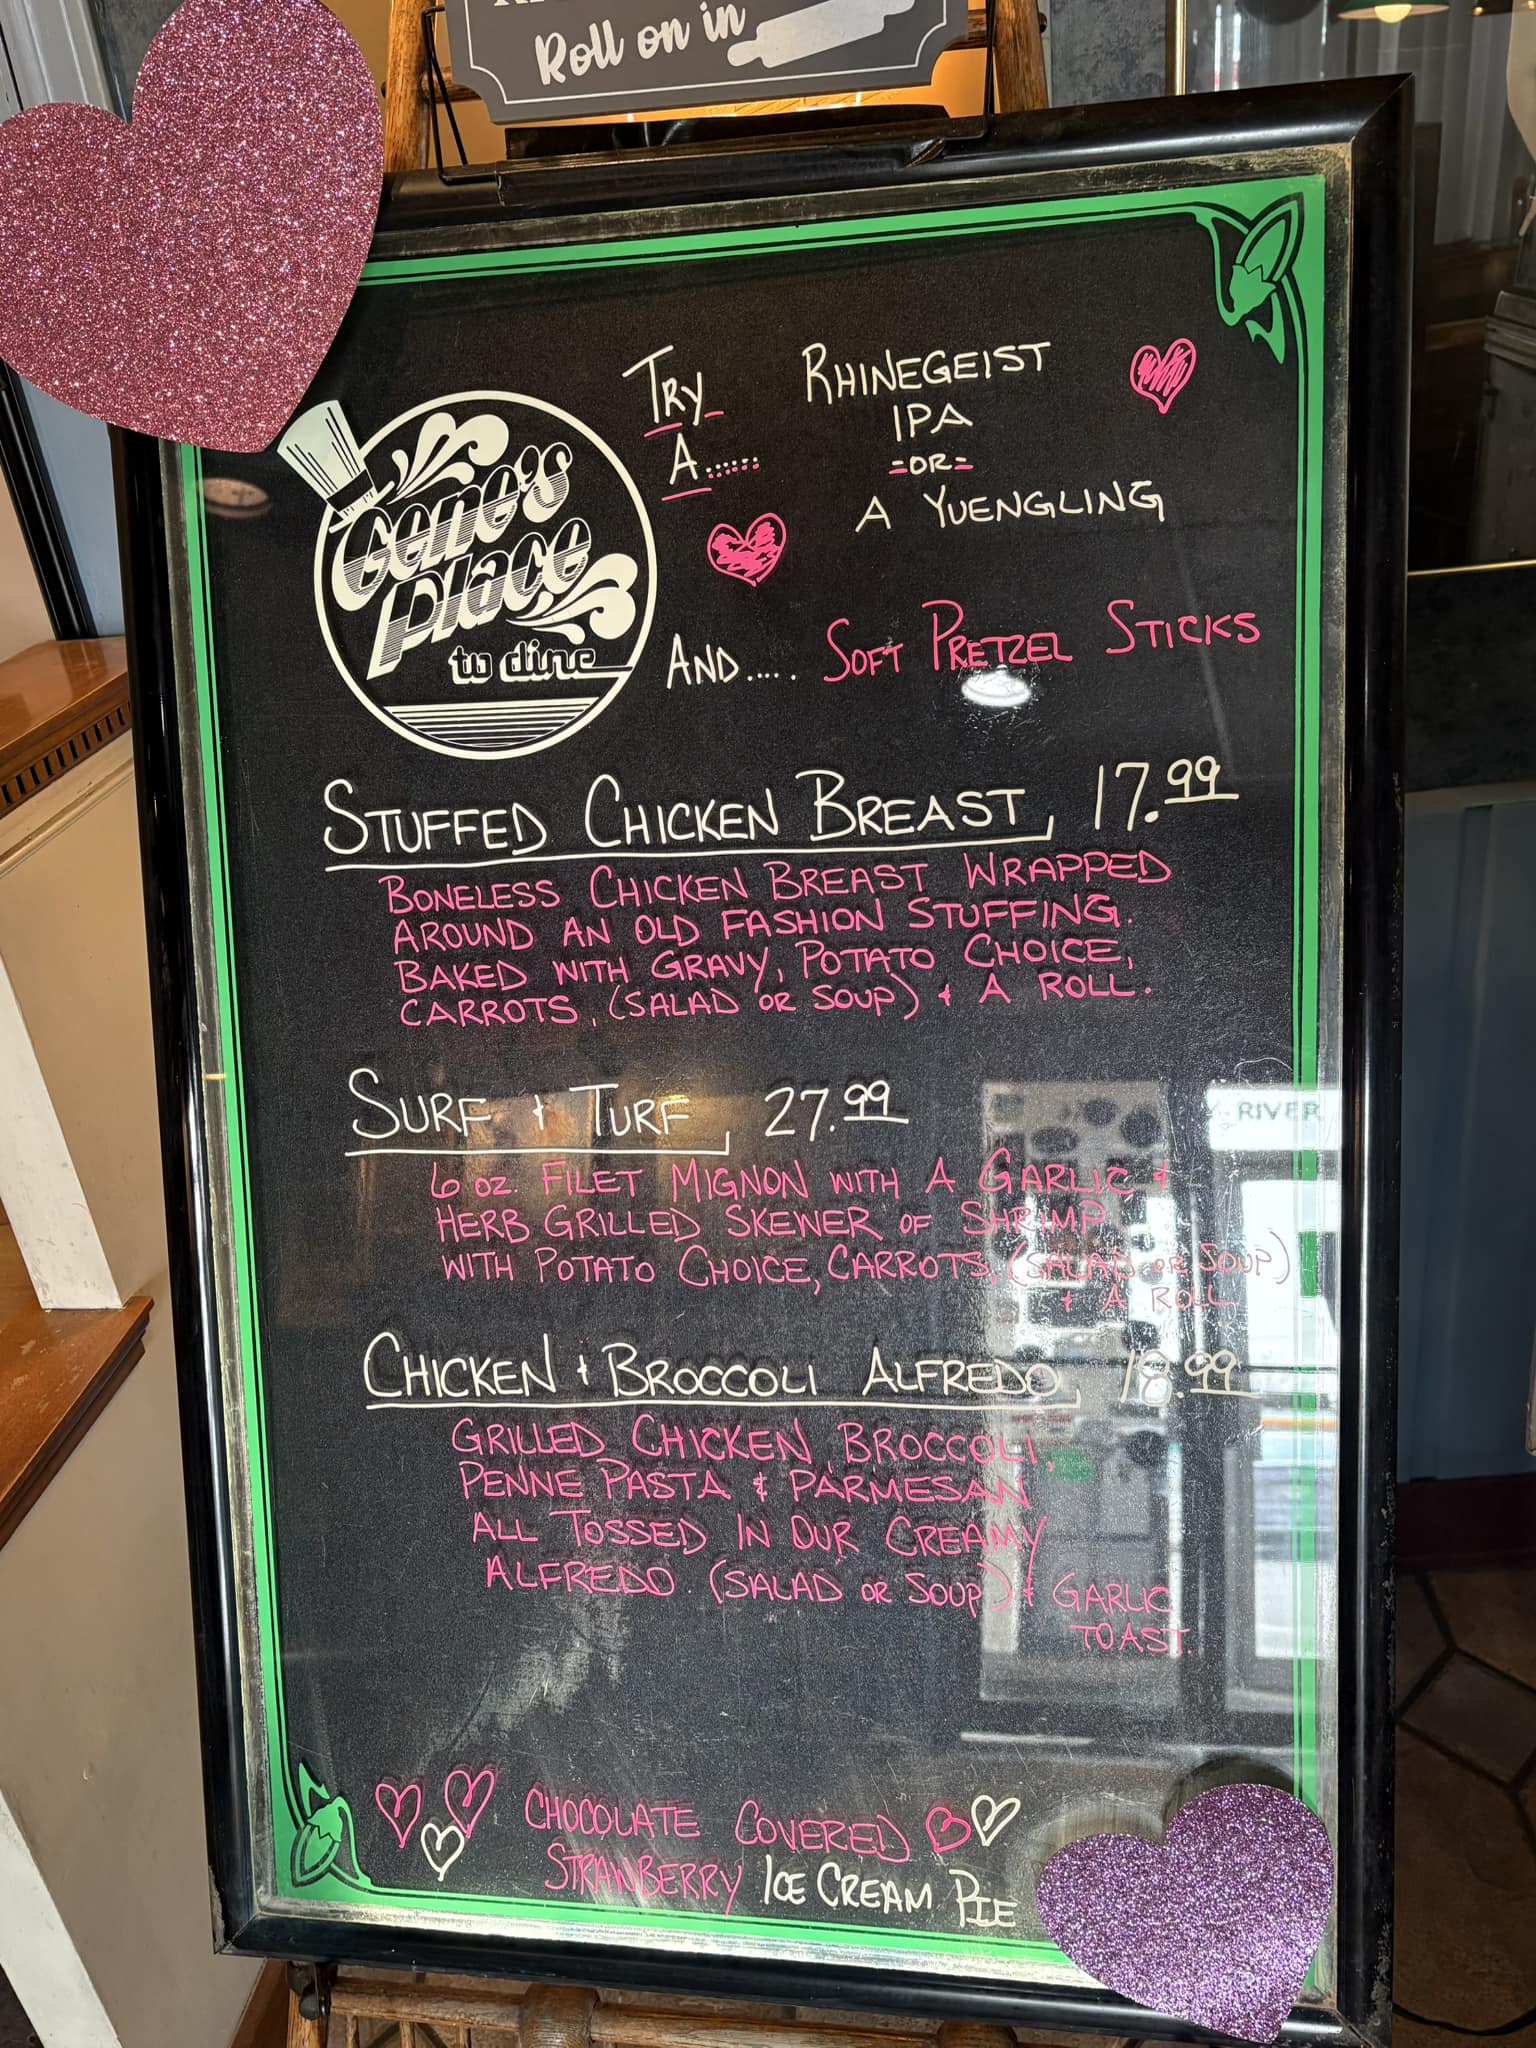 Roll on in
TRY
RHINEGEIST
IPA
A......
=OR=
A YUENGLING
Geno's
Place
to dine
AND..... SOFT PRETZEL STICKS
STUFFED CHICKEN BREAST, 17.99
BONELESS CHICKEN BREAST WRAPPED
AROUND AN OLD FASHION STUFFING.
BAKED WITH GRAVY, POTATO CHOICE,
CARROTS, (SALAD OR SOUP) & A ROLL.
SURF & TURF, 27.99
RIVER
6 OZ. FILET MIGNON WITH A GARLIC &
HERB GRILLED SKEWER OF SHRIMP
WITH POTATO CHOICE, CARROTS, (SALAD OR SOUP)
& A ROLL
CHICKEN & BROCCOLI ALFREDO, 18.99
GRILLED CHICKEN, BROCCOLI,
PENNE PASTA & PARMESAN
ALL TOSSED IN OUR CREAMY
ALFREDO. (SALAD OR SOUP) & GARLIC
TOAST.
CHOCOLATE COVERED
STRAWBERRY ICE CREAM PIE